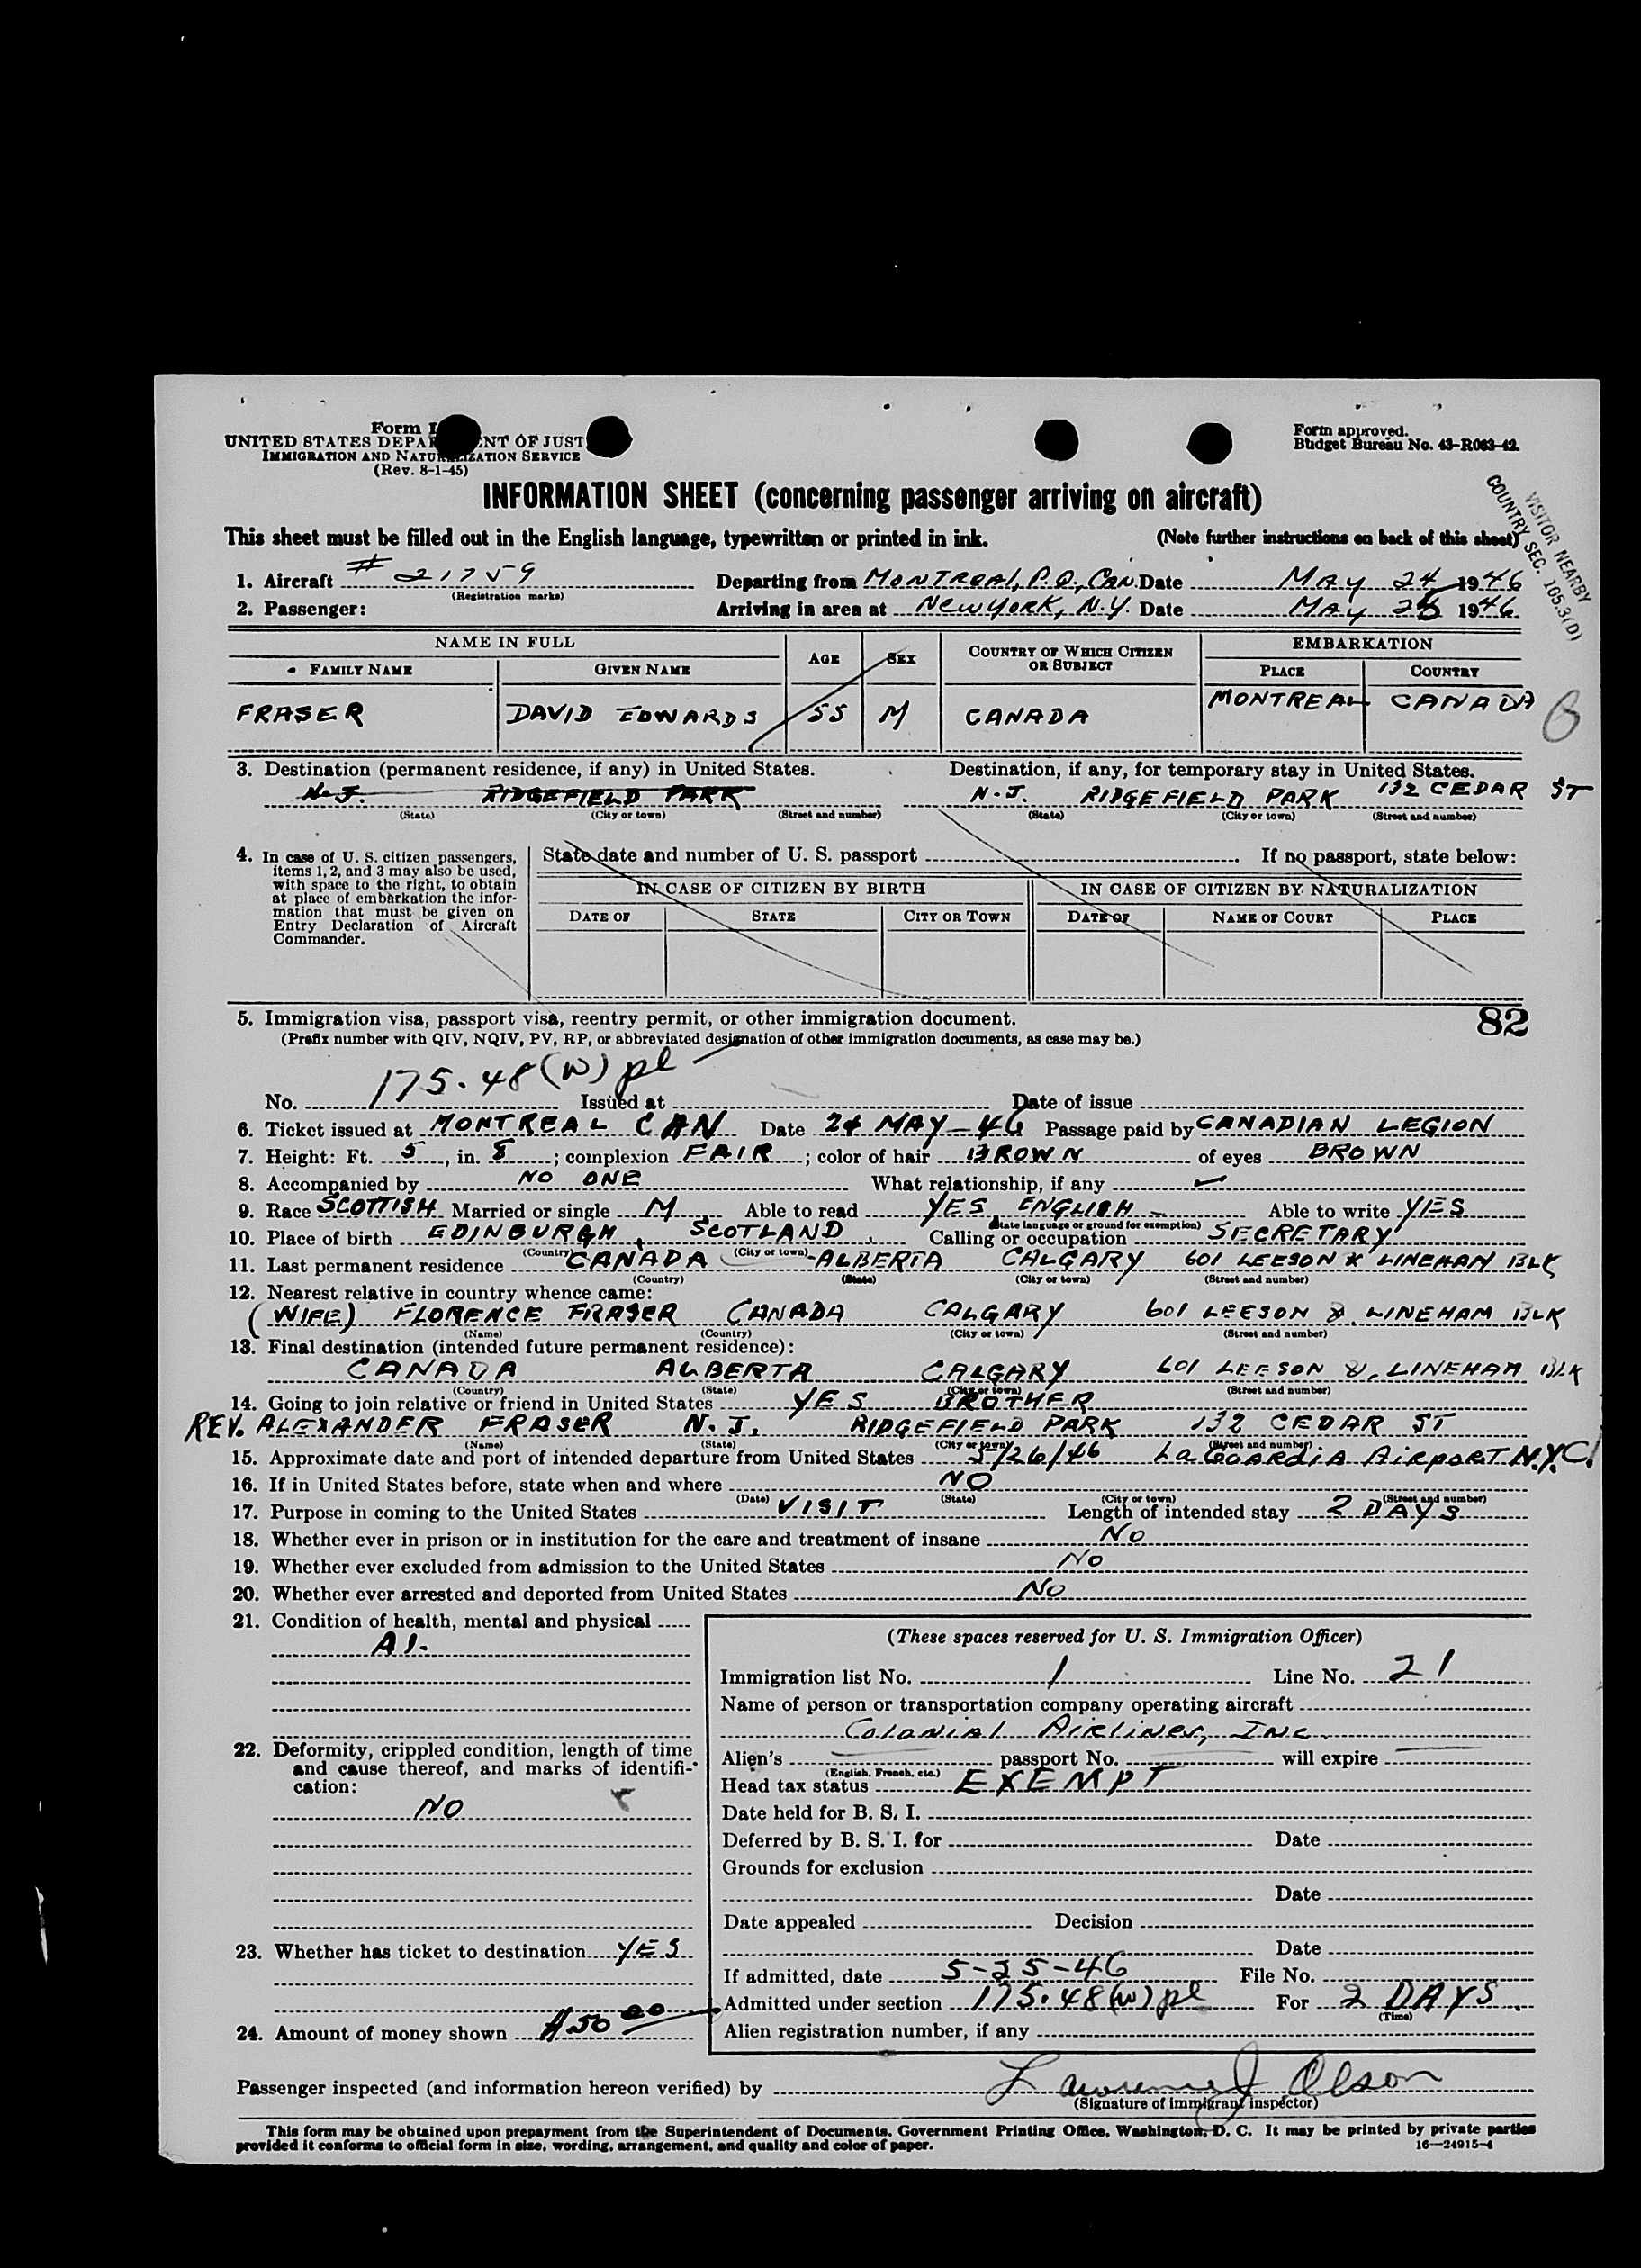 Form I
UNITED STATES DEPA NT OF JUST
IMMIGRATION AND NATURALIZATION SERVICE
(Rev. 8-1-45)
Form approved.
Budget Bureau No. 43-R063-42.
INFORMATION SHEET (concerning passenger arriving on aircraft)
VISITOR NEARBY
COUNTRY SEC. 105.3(D)
This sheet must be filled out in the English language, typewritten or printed in ink. (Note further instructions on back of this sheet)
1. Aircraft # 21759 Departing from MONTREAL, P.Q., CAN. Date MAY 24 1946
(Registration marks)
2. Passenger: Arriving in area at NEW YORK, N.Y. Date MAY 25 1946
NAME IN FULL AGE SEX COUNTRY OF WHICH CITIZEN OR SUBJECT EMBARKATION
FAMILY NAME GIVEN NAME PLACE COUNTRY
FRASER DAVID EDWARDS 55 M CANADA MONTREAL CANADA
3. Destination (permanent residence, if any) in United States. Destination, if any, for temporary stay in United States.
N.J. RIDGEFIELD PARK N.J. RIDGEFIELD PARK 132 CEDAR ST
(State) (City or town) (Street and number) (State) (City or town) (Street and number)
4. In case of U. S. citizen passengers, items 1, 2, and 3 may also be used, with space to the right, to obtain at place of embarkation the information that must be given on Entry Declaration of Aircraft Commander.
State date and number of U. S. passport If no passport, state below:
IN CASE OF CITIZEN BY BIRTH IN CASE OF CITIZEN BY NATURALIZATION
DATE OF STATE CITY OR TOWN DATE OF NAME OF COURT PLACE
5. Immigration visa, passport visa, reentry permit, or other immigration document. 82
(Prefix number with QIV, NQIV, PV, RP, or abbreviated designation of other immigration documents, as case may be.)
No. 175.48(W) pl Issued at Date of issue
6. Ticket issued at MONTREAL CAN Date 24 MAY-46 Passage paid by CANADIAN LEGION
7. Height: Ft. 5, in. 8; complexion FAIR; color of hair BROWN of eyes BROWN
8. Accompanied by NO ONE What relationship, if any
9. Race SCOTTISH Married or single M Able to read YES ENGLISH Able to write YES
(State language or ground for exemption)
10. Place of birth EDINBURGH, SCOTLAND Calling or occupation SECRETARY
(Country) (City or town)
11. Last permanent residence CANADA ALBERTA CALGARY 601 LEESON & LINEHAM BLK
(Country) (State) (City or town) (Street and number)
12. Nearest relative in country whence came:
(WIFE) FLORENCE FRASER CANADA CALGARY 601 LEESON & LINEHAM BLK
(Name) (Country) (City or town) (Street and number)
13. Final destination (intended future permanent residence):
CANADA ALBERTA CALGARY 601 LEESON & LINEHAM BLK
(Country) (State) (City or town) (Street and number)
14. Going to join relative or friend in United States YES BROTHER
REV. ALEXANDER FRASER N.J. RIDGEFIELD PARK 132 CEDAR ST
(Name) (State) (City or town) (Street and number)
15. Approximate date and port of intended departure from United States 5/26/46 LaGuardia Airport N.Y.C.
16. If in United States before, state when and where NO
(Date) (State) (City or town) (Street and number)
17. Purpose in coming to the United States VISIT Length of intended stay 2 DAYS
18. Whether ever in prison or in institution for the care and treatment of insane NO
19. Whether ever excluded from admission to the United States NO
20. Whether ever arrested and deported from United States NO
21. Condition of health, mental and physical
A1.
22. Deformity, crippled condition, length of time
and cause thereof, and marks of identifi-
cation:
NO
23. Whether has ticket to destination YES
24. Amount of money shown $50 00
(These spaces reserved for U. S. Immigration Officer)
Immigration list No. 1 Line No. 21
Name of person or transportation company operating aircraft
Colonial Airlines, Inc.
Alien's passport No. will expire
(English, French, etc.)
Head tax status EXEMPT
Date held for B. S. I.
Deferred by B. S. I. for Date
Grounds for exclusion
Date
Date appealed Decision
Date
If admitted, date 5-25-46 File No.
Admitted under section 175.48(W) pl For 2 DAYS
(Time)
Alien registration number, if any
Passenger inspected (and information hereon verified) by Lawrence J Olson
(Signature of immigrant inspector)
This form may be obtained upon prepayment from the Superintendent of Documents, Government Printing Office, Washington, D. C. It may be printed by private parties
provided it conforms to official form in size, wording, arrangement, and quality and color of paper. 16—24915-4